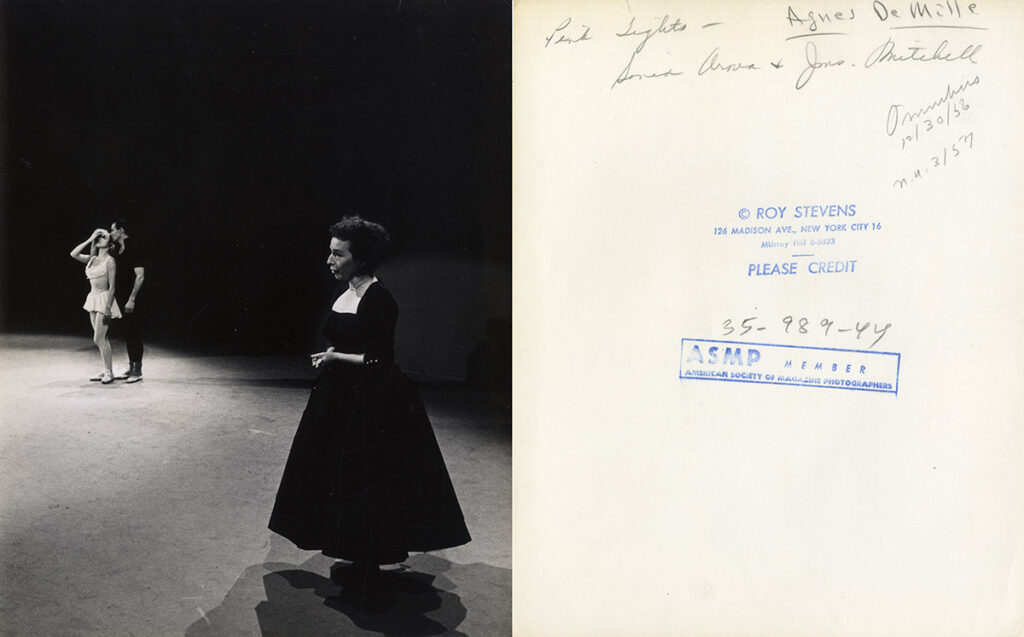 Agnes De Mille
Pink Tights —
Sonia Arova + Jms. Mitchell
Omnibus
12/30/56
n.u. 3/57
© ROY STEVENS
126 MADISON AVE., NEW YORK CITY 16
MUrray Hill 6-8823
PLEASE CREDIT
35-989-44
ASMP MEMBER
AMERICAN SOCIETY OF MAGAZINE PHOTOGRAPHERS